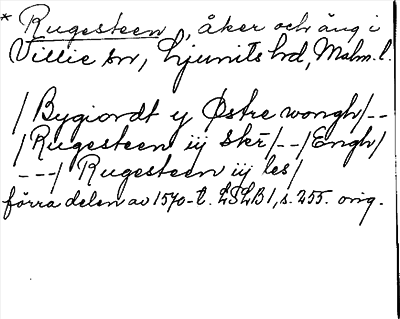 * Rugesteen, åker och äng i
Villie sn, Ljunits hd, Malm. l.
/Bygiordt y Østre wongh/--
/Rugesteen iij skr/--/Engh/
---/ Rugesteen iij les/
förra delen av 1570-t. LSLB 1, s. 255. orig.